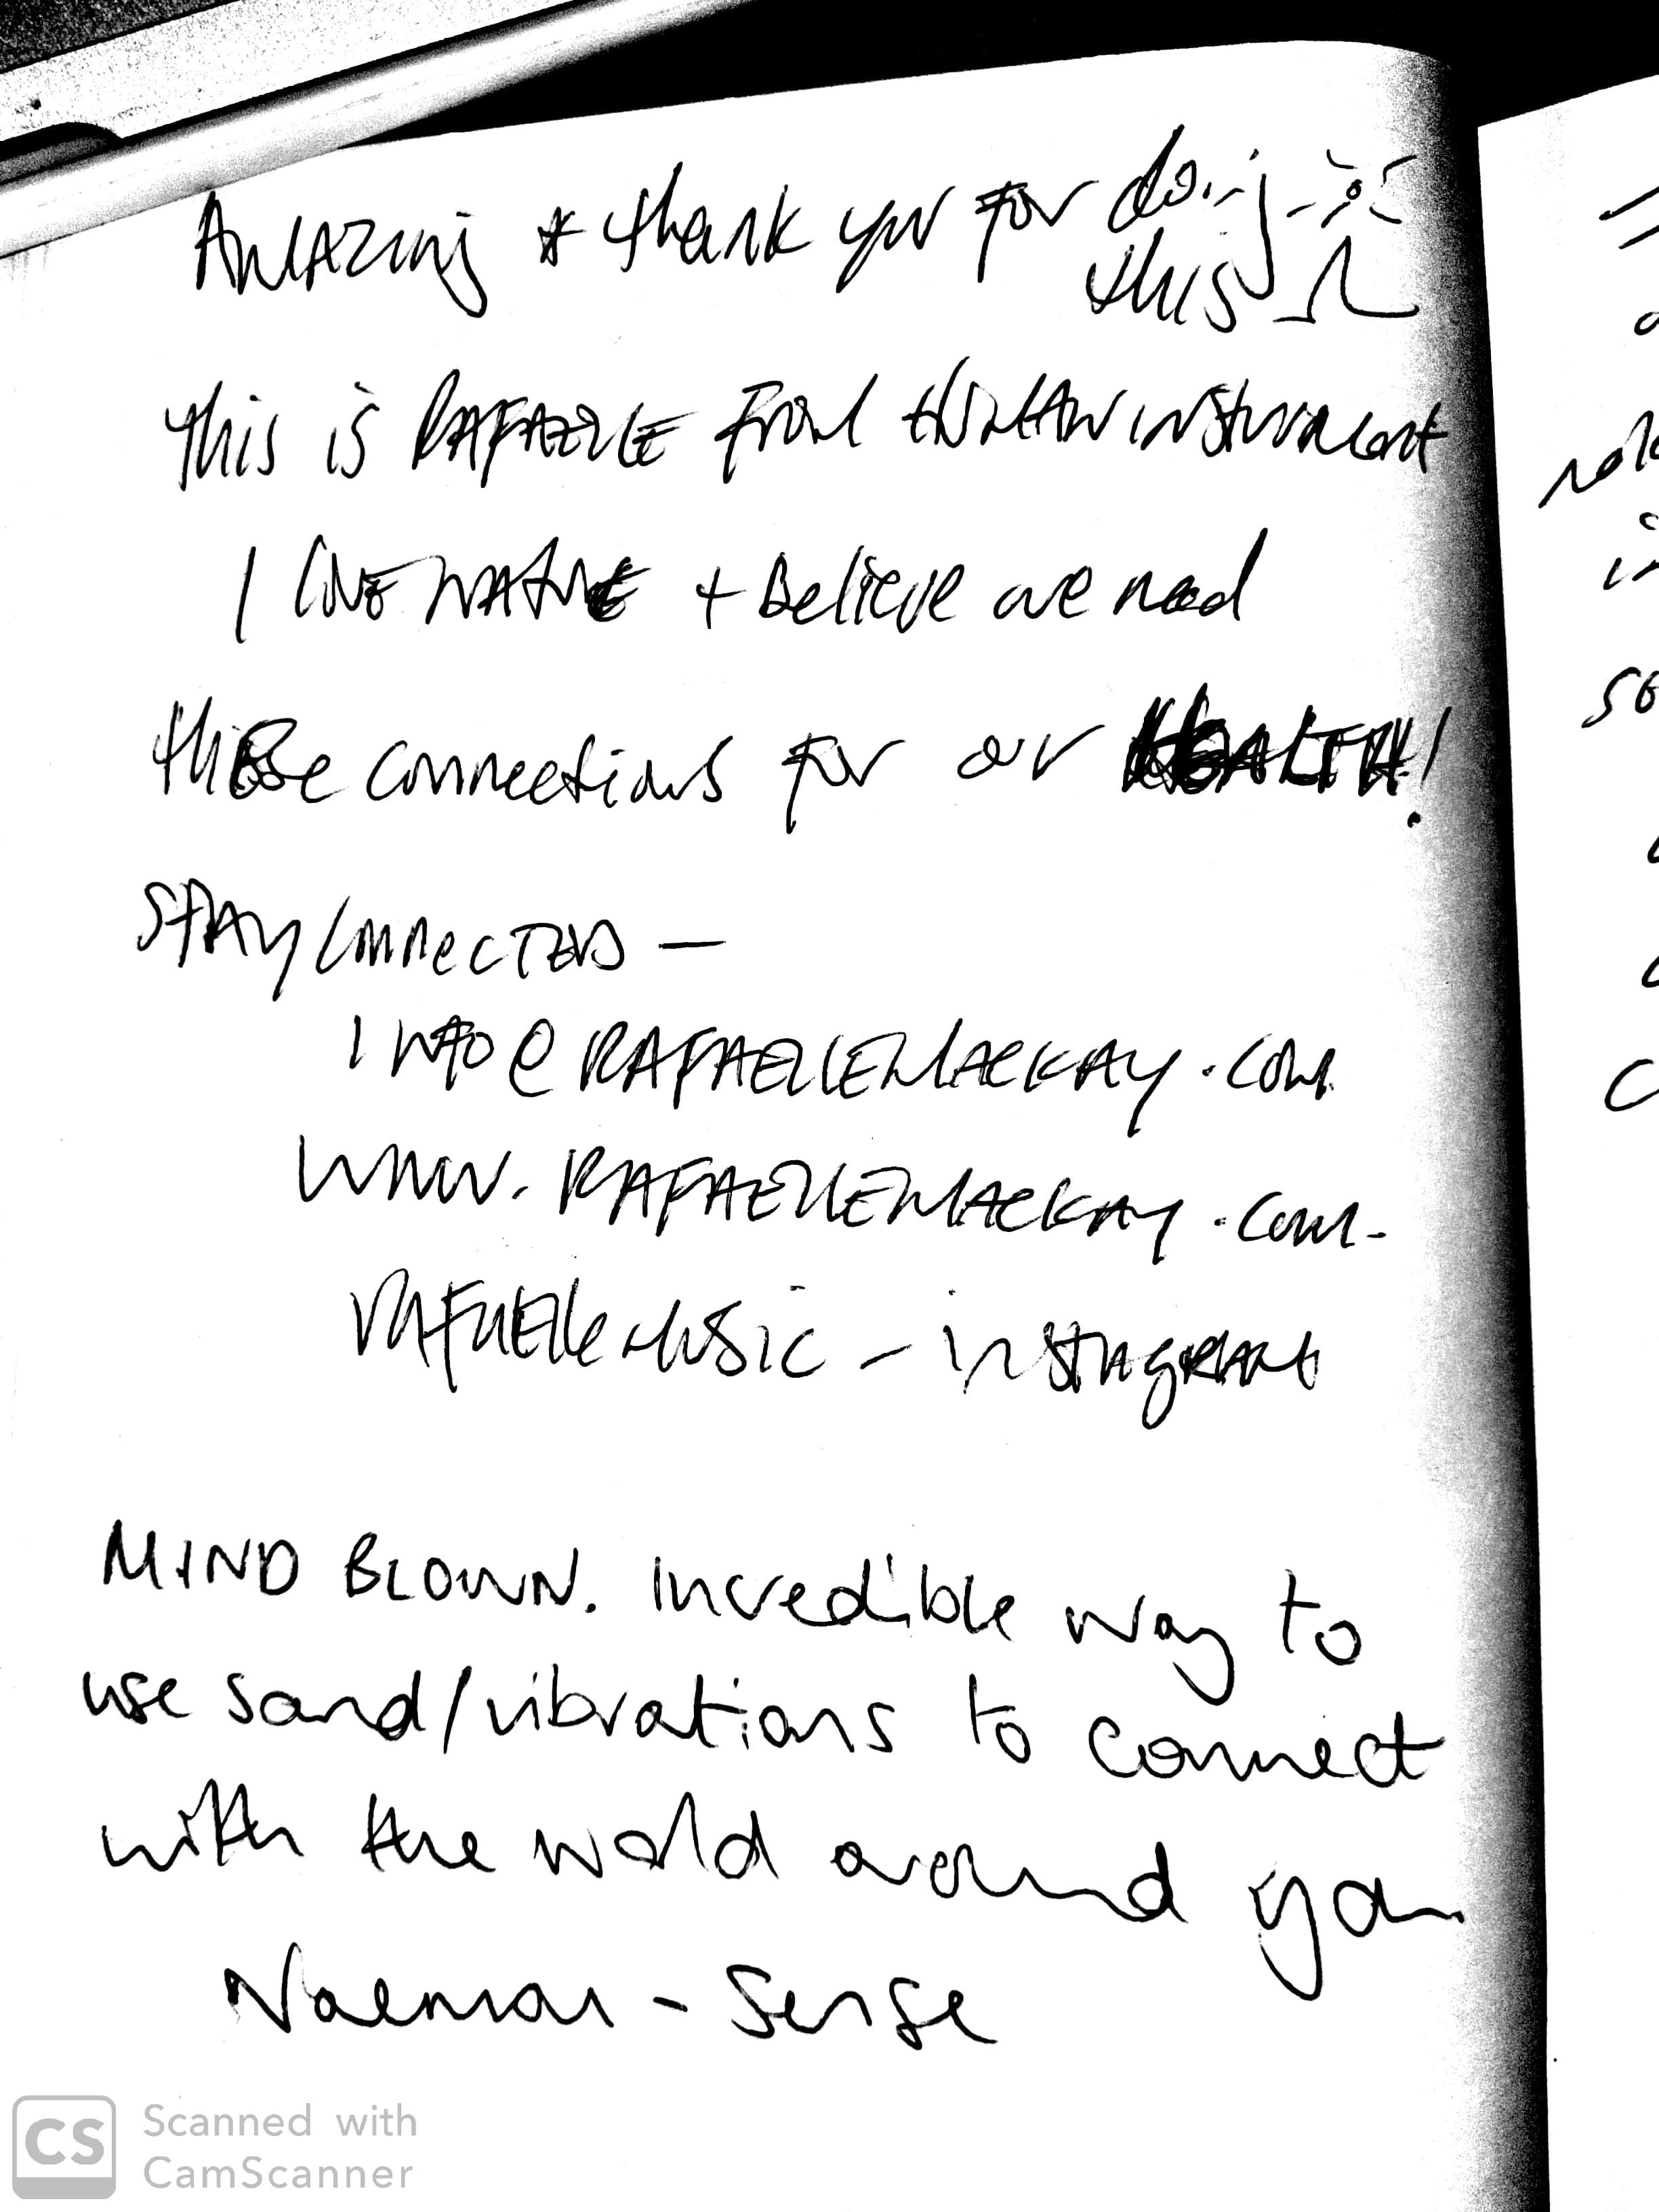 Amazing & thank you for doing
this
This is RAFAELLE from HUMAN instrument
I LOVE NATURE + Believe we need
these connections for our HEALTH!
STAY CONNECTED —
INFO@RAFAELLEMACKAY.COM
WWW.RAFAELLEMACKAY.COM.
RAFAELLEMUSIC - INSTAGRAM
MIND BLOWN. Incredible way to
use sand/vibrations to connect
with the world around you
- Sense
CS Scanned with
CamScanner